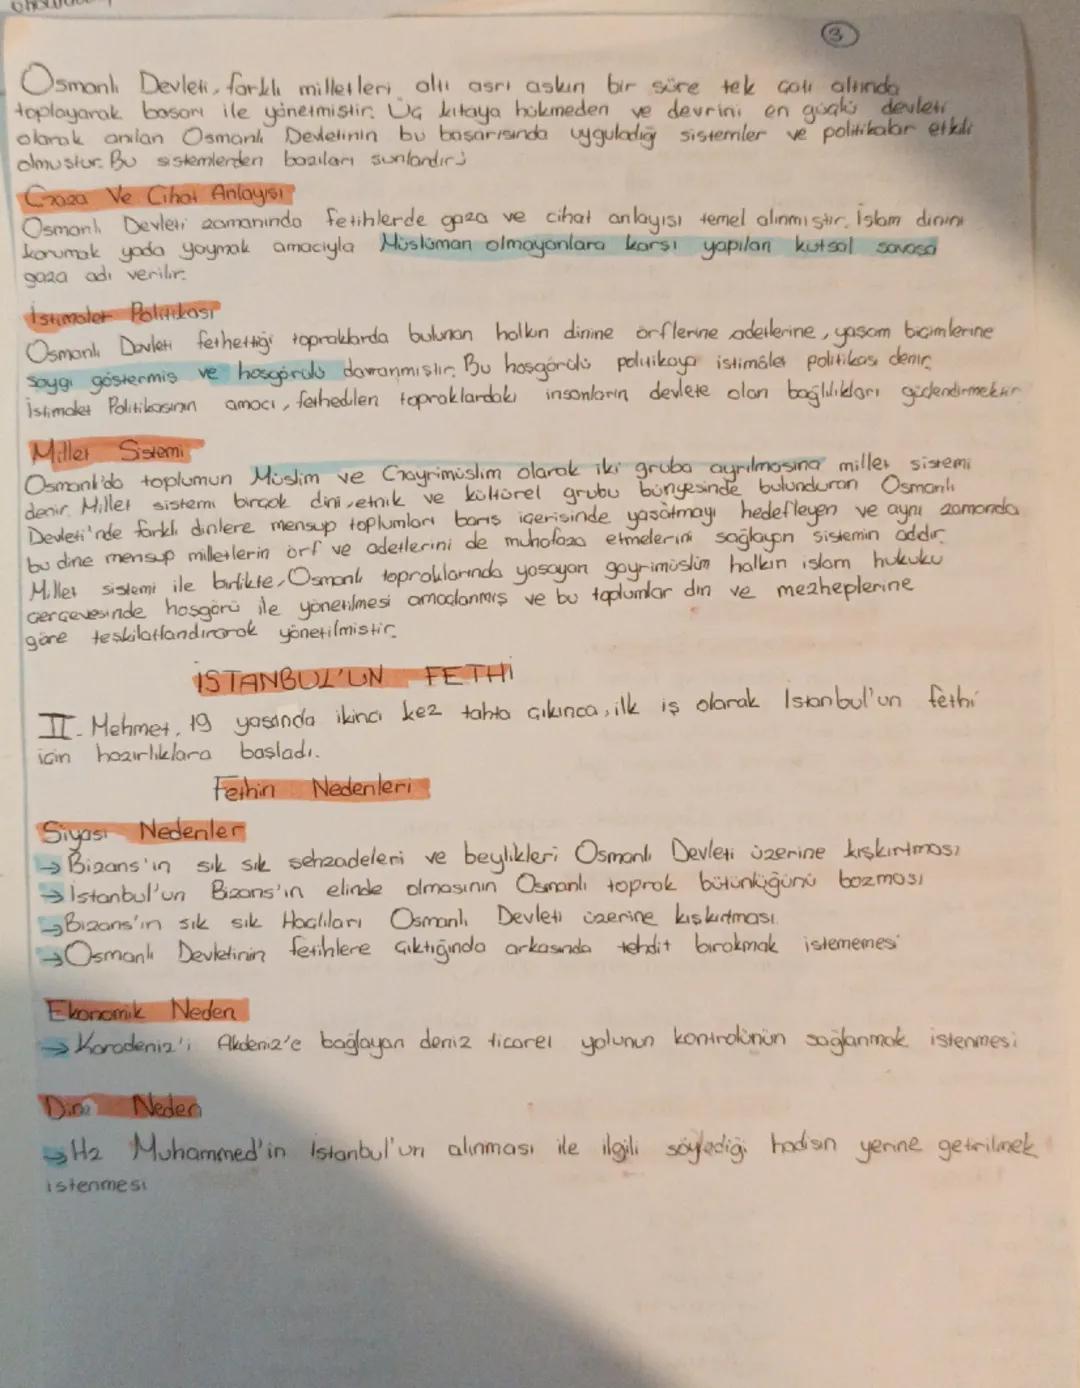 3
Osmanlı Devleti, farklı milletleri altı asrı aşkın bir süre tek çatı altında
toplayarak başarı ile yönetmiştir. Üç kıtaya hükmeden ve devrini en güçlü devleti
olarak anılan Osmanlı Devletinin bu başarısında uyguladığı sistemler ve politikalar etkili
olmuştur. Bu sistemlerden bazıları şunlardır;
Gaza Ve Cihat Anlayışı
Osmanlı Devleti zamanında fetihlerde gaza ve cihat anlayışı temel alınmıştır. İslam dinini
korumak yada yaymak amacıyla Müslüman olmayanlara karşı yapılan kutsal savaşa
gaza adı verilir.
İstimalet Politikası
Osmanlı Devleti fethettiği topraklarda bulunan halkın dinine örflerine adetlerine, yaşam biçimlerine
saygı göstermiş ve hoşgörülü davranmıştır. Bu hoşgörülü politikaya istimâlet politikası denir.
İstimalet Politikasının amacı, fethedilen topraklardaki insanların devlete olan bağlılıkları güçlendirmektir
Millet Sistemi
Osmanlı'da toplumun Müslim ve Gayrimüslim olarak iki gruba ayrılmasına millet sistemi
denir. Millet sistemi birçok dini, etnik ve kültürel grubu bünyesinde bulunduran Osmanlı
Devleti'nde farklı dinlere mensup toplumları barış içerisinde yaşatmayı hedefleyen ve aynı zamanda
bu dine mensup milletlerin örf ve adetlerini de muhafaza etmelerini sağlayan sistemin adıdır.
Millet sistemi ile birlikte, Osmanlı topraklarında yaşayan gayrimüslim halkın islam hukuku
çerçevesinde hoşgörü ile yönetilmesi amaçlanmış ve bu toplumlar din ve mezheplerine
göre teşkilatlandırarak yönetilmiştir.
İSTANBUL'UN FETHİ
II. Mehmet, 19 yaşında ikinci kez tahta çıkınca, ilk iş olarak İstanbul'un fethi
için hazırlıklara başladı.
Fethin Nedenleri
Siyasi Nedenler
→ Bizans'ın sık sık şehzadeleri ve beylikleri Osmanlı Devleti üzerine kışkırtması
→ İstanbul'un Bizans'ın elinde olmasının Osmanlı toprak bütünlüğünü bozması
→ Bizans'ın sık sık Haçlıları Osmanlı Devleti üzerine kışkırtması
→ Osmanlı Devletinin fetihlere çıktığında arkasında tehdit bırakmak istememesi
Ekonomik Neden
→ Karadeniz'i Akdeniz'e bağlayan deniz ticaret yolunun kontrolünün sağlanmak istenmesi
Dini Neden
→ Hz Muhammed'in İstanbul'un alınması ile ilgili söylediği hadisin yerine getirilmek
istenmesi